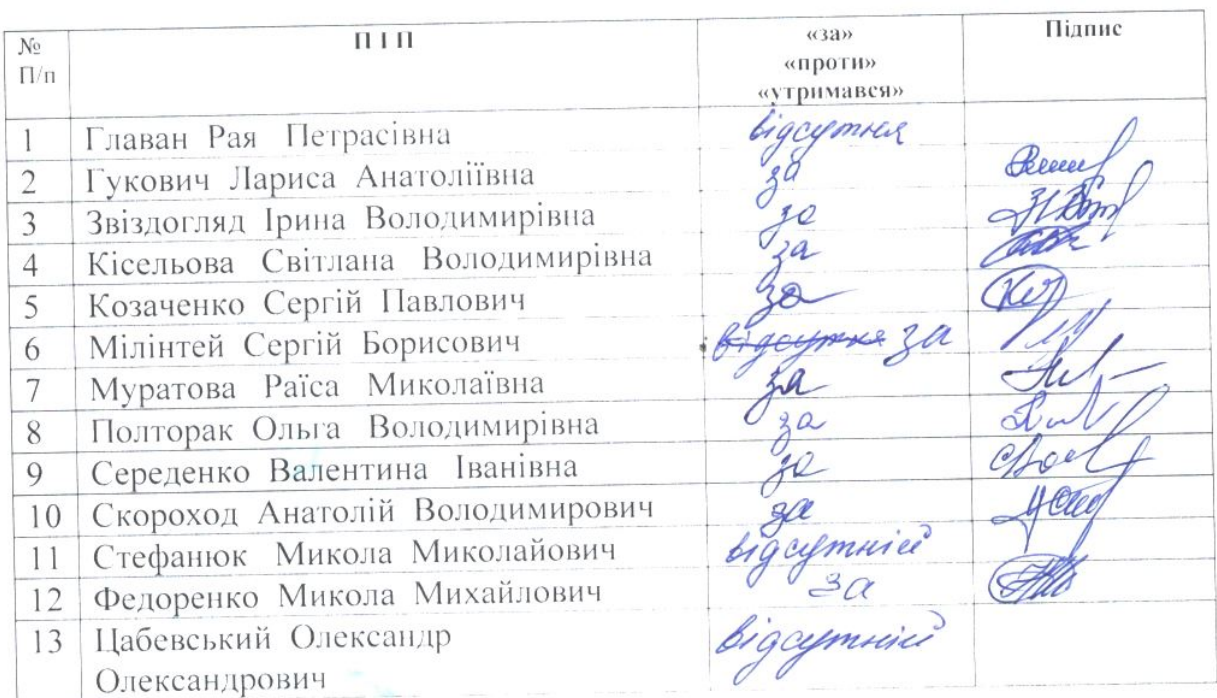 № П І П «за» Підпис
П/п «проти»
«утримався»
1 Главан Рая Петрасівна відсутня
2 Гукович Лариса Анатоліївна за
3 Звіздогляд Ірина Володимирівна за
4 Кісельова Світлана Володимирівна за
5 Козаченко Сергій Павлович за
6 Мілінтей Сергій Борисович відсутня за
7 Муратова Раїса Миколаївна за
8 Полторак Ольга Володимирівна за
9 Середенко Валентина Іванівна за
10 Скороход Анатолій Володимирович за
11 Стефанюк Микола Миколайович відсутній
12 Федоренко Микола Михайлович за
13 Цабевський Олександр відсутній
Олександрович